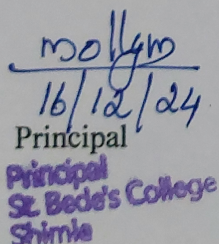 mollym
16/12/24
Principal
Principal
St. Bede's College
Shimla